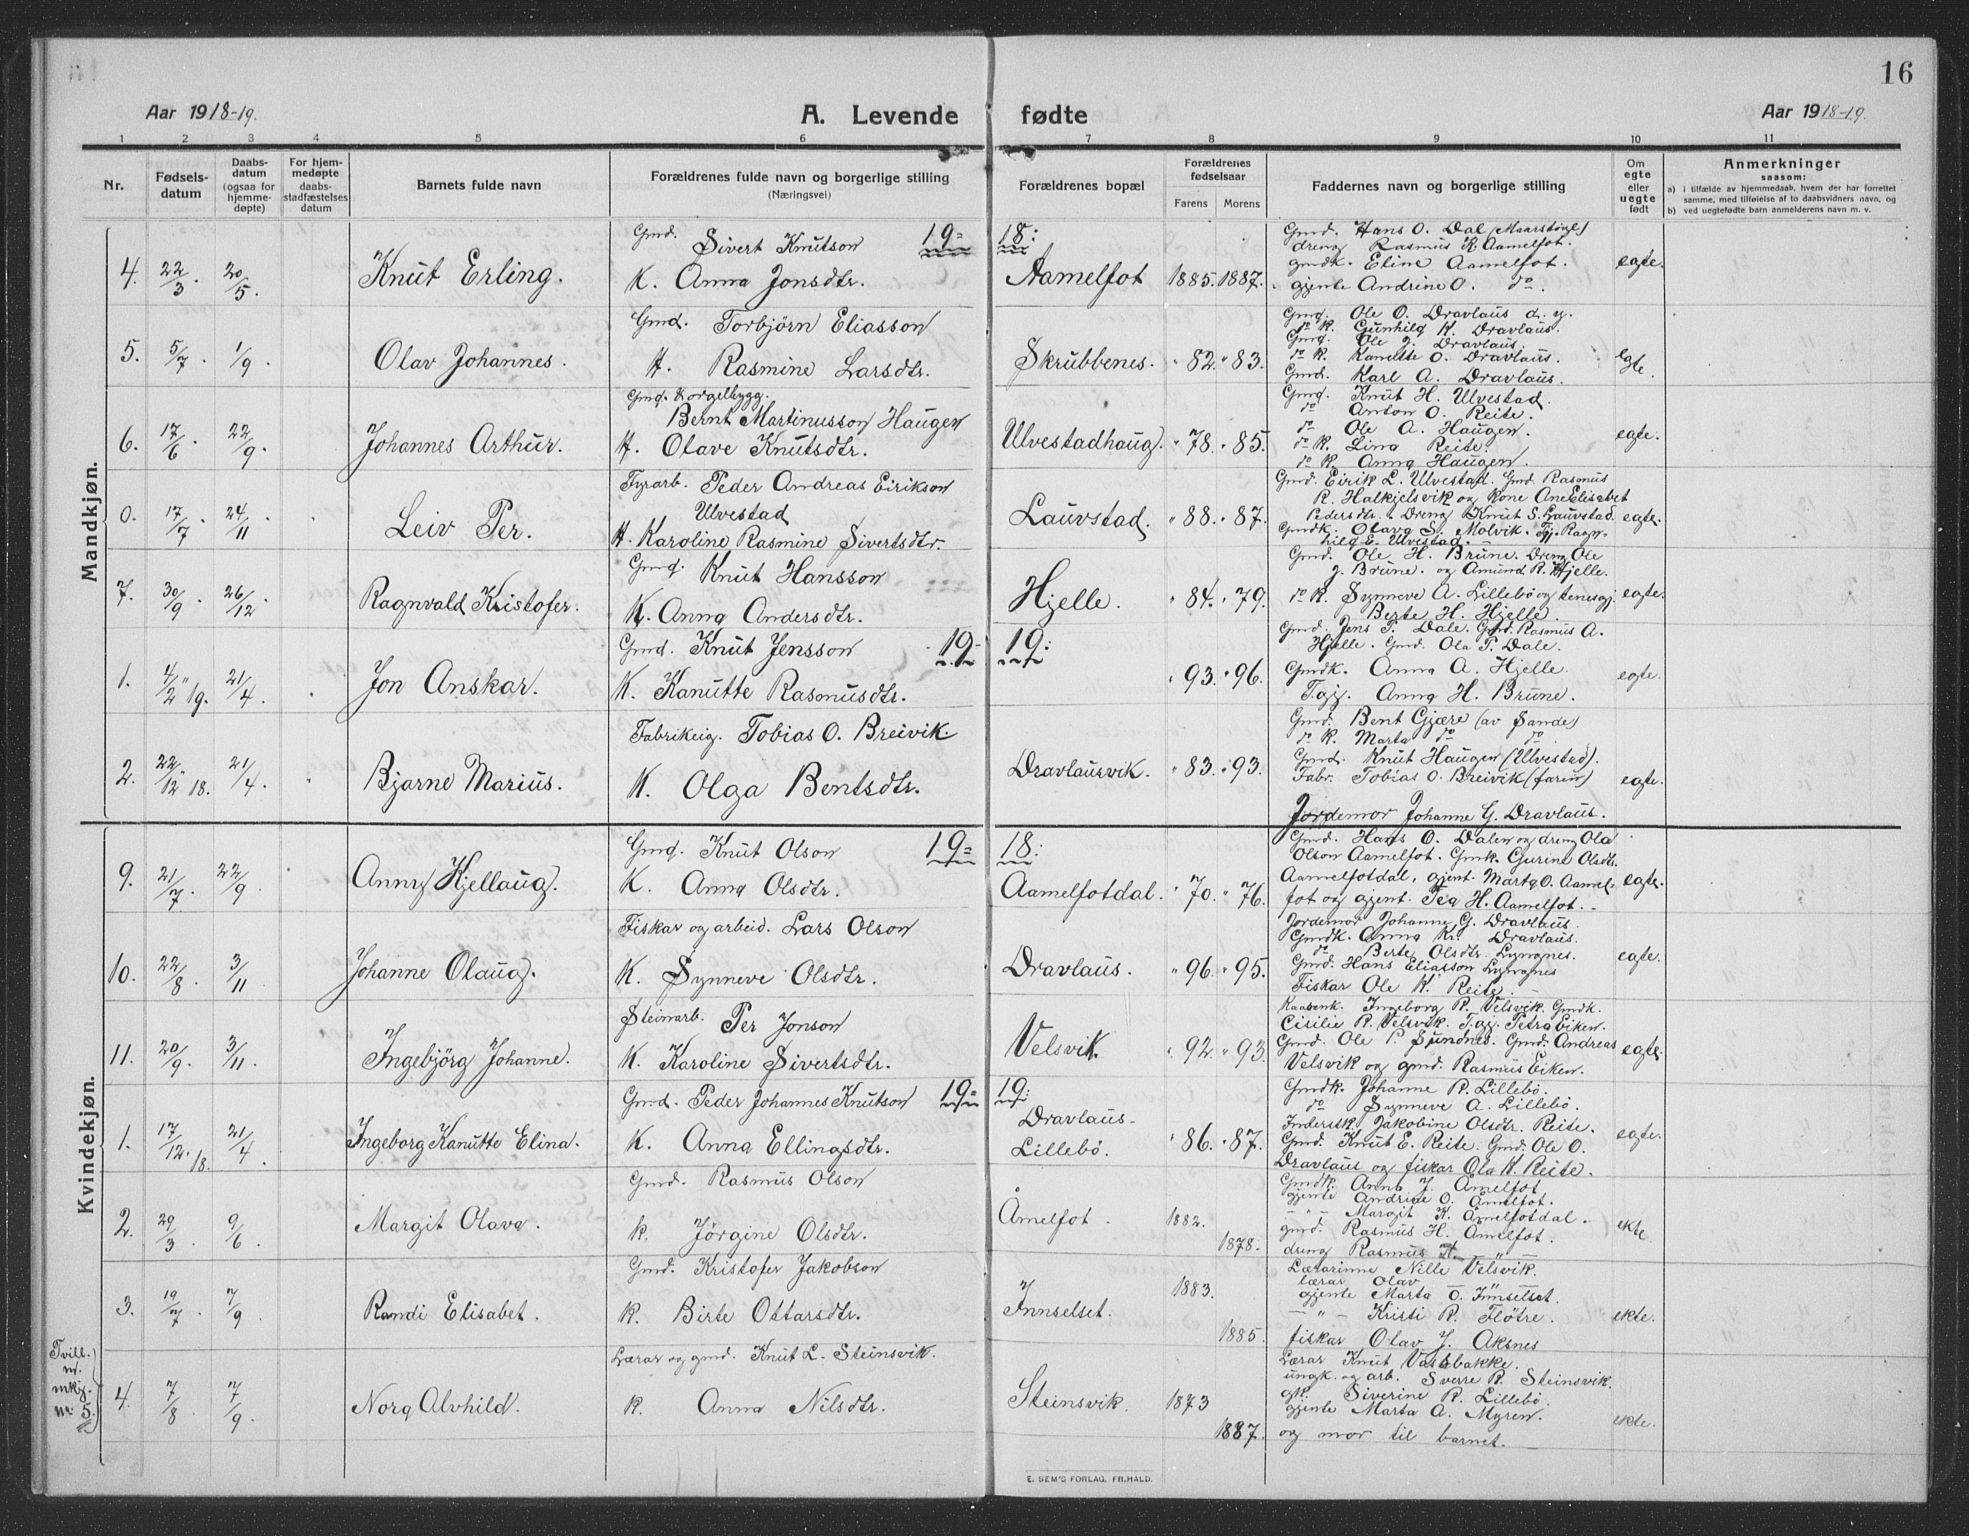 16
Aar 1918-19.
A. Levende fødte
Aar 1918-19.
1 2 3 4 5 6 7 8 9 10 11
Nr.
Fødsels-
datum
Daabs-
datum
(ogsaa for
hjemme-
døpte)
For hjem-
medøpte
daabs-
stadfæstelses
datum
Barnets fulde navn
Forældrenes fulde navn og borgerlige stilling
(Næringsvei)
Forældrenes bopæl
Forældrenes
fødselsaar
Farens Morens
Faddernes navn og borgerlige stilling
Om
egte
eller
uegte
født
Anmerkninger
saasom:
a) i tilfælde av hjemmedaab, hvem der har forrettet
samme, med tilføielse af to daabsvidners navn, og
b) ved uegtefødt barn anmelderens navn m. v.
Mandkjøn.
19- 18:
4. 22/3 . 20/5 . Knut Erling.
Gmd. Sivert Knutson
K. Anna Jonsdtr.
Aamelfot 1885. 1887.
Gmd. Hans O. Dal (Maarstöyl)
dreng Rasmus K. Aamelfot.
gmdk. Eline Aamelfot.
gjente Andrine O. do.
egte.
5. 5/7 . 1/9 . Olav Johannes.
Gmd. Torbjörn Eliasson
H. Rasmine Larsdtr.
Skrubbenes. " 82. " 83.
Gmd. Ole O. Dravlaus d. y.
do K. Gunhild K. Dravlaus.
Gmd. Ole J. Dravlaus.
do K. Kanutte O. Dravlaus.
Gmd. Karl A. Dravlaus.
egte.
6. 17/6 . 22/9 . Johannes Arthur.
Gmd. & orgelbygg.
Bernt Martinusson Haugen
H. Olave Knutsdtr.
Ulvestadhaug. " 78. " 85.
Gmd. Knut H. Ulvestad.
do Anton O. Reite.
do Ole A. Haugen.
do K. Lina Reite.
do K. Anna Haugen.
egte.
0. 17/7 . 24/11 . Leiv Per.
Fyrarb. Peder Andreas Eirikson
Ulvestad
H. Karoline Rasmine Sivertsdtr.
Lauvstad. " 88. " 87.
Gmd. Eirik L. Ulvestad. Gmd. Rasmus
R. Halkjelsvik og kone Ane Elisabet
Pedersdtr. Dreng Knut S. Lauvstad.
Gmdk. Olava S. Molvik. Tj. Ragn-
hild E. Ulvestad.
egte.
7. 30/9 . 26/12 . Ragnvald Kristofer.
Gmd. Knut Hansson
K. Anna Andersdtr.
Hjelle. " 84. " 79.
Gmd. Ole H. Brune. Dreng Ole
J. Brune. og Amund R. Hjelle.
do K. Synneve A. Lillebö og tenesgj.
Berte H. Hjelle.
egte.
19- 19:
1. 4/2 19. 21/4 . Jon Anskar.
Gmd. Knut Jensson
K. Kanutte Rasmusdtr.
" 93. " 96.
Gmd. Jens P. Dale. Gmd. Rasmus A.
Hjelle. Gmd. Ola P. Dale.
Gmdk. Anna A. Hjelle.
T.gj. Anna H. Brune.
egte.
2. 22/12 18. 21/4 . Bjarne Marius.
Fabrikeig. Tobias O. Breivik.
K. Olga Bentsdtr.
Dravlausvik. " 83. " 93.
Gmd. Bent Gjære (av Sande)
do K. Marta do do.
Gmd. Knut Haugen (Ulvestad).
Fabr. Tobias O. Breivik (faren)
Jordemor Johanne G. Dravlaus.
egte.
Kvindekjøn.
19- 18:
9. 21/7 . 22/9 . Anny Kjellaug.
Gmd. Knut Olson
K. Anna Olsdtr.
Aamelfotdal. " 70. " 76.
Gmd. Hans O. Dalen og dreng Ola
Olson Aamelfot. Gmk. Gurine Olsdtr.
Aamelfotdal, gjent. Marta O. Aamel-
fot og gjent. Tea H. Aamelfot.
egte.
10. 22/8 . 3/11 . Johanne Olaug.
Fiskar og arbeid. Lars Olson
K. Synneve Olsdtr.
Dravlaus. " 96. " 95.
Jordemor Johanne G. Dravlaus.
Gmdk. Anna K. Dravlaus.
do Berte Olsdtr. Lyngnes.
Gmd. Hans Eliasson Lyngnes
Fiskar Ole K. Reite.
egte.
11. 20/9 . 3/11 . Ingebjörg Johanne.
Steinarb. Per Jonson
K. Karoline Sivertsdtr.
Velsvik. " 92. " 93.
Ingeborg R. Velsvik. Gmdk.
Cisilie R. Velsvik. T.gj. Petra Eiken.
Gmd. Ole P. Sundnes. Gmd. Andreas
Velsvik og gmd. Rasmus Eiken.
egte.
19- 19:
1. 17/12 . 18. 21/4 . Ingeborg Kanutte Elina.
Gmd. Peder Johannes Knutson
K. Anna Ellingsdtr.
Dravlaus-
Lillebø. " 86. " 87.
Gmdk. Johanne R. Lillebö.
do Synneve A. Lillebö.
Inderstk. Jakobine Olsdtr. Reite.
Gmd. Knut E. Reite. Gmd. Ole O.
Dravlaus og fiskar Ola K. Reite.
egte.
2. 29/3 . 9/6 . Margit Olava.
Gmd. Rasmus Olson
k. Jörgine Olsdtr.
Åmelfot. 1882. 1878.
Gmdk. Anna J. Åmelfot
gjente Andrine O. Åmelfot.
— " — Margit K. Åmelfotdal.
gmd. Rasmus H. Åmelfot.
dreng Rasmus K. — " —
ekte
3. 19/7 . 7/9 . Randi Elisabet.
Gmd. Kristofer Jakobson
k. Birte Ottarsdtr.
Innselset. 1883. 1885.
Lærarinne Nille Velsvik.
lærar Olav
gjente Marta O. Innselset.
— " — Kristi R. Flötre.
fiskar Olav J. Aksnes
ekte.
Tvill.
m.
mkj.
nr. 5.
4. 7/8 . 7/9 . Nora Alvhild.
Lærar og gmd. Knut L. Steinsvik.
k. Anna Nilsdtr.
Steinsvik. 1873 1887.
Lærar Knut Vassbakke.
ungk. og arb. Sverre R. Steinsvik.
gk. Siverine R. Lillebö.
gjente Marta A. Myren.
og mor til barnet.
ekte.
E. SEM'S FORLAG, FR.HALD.